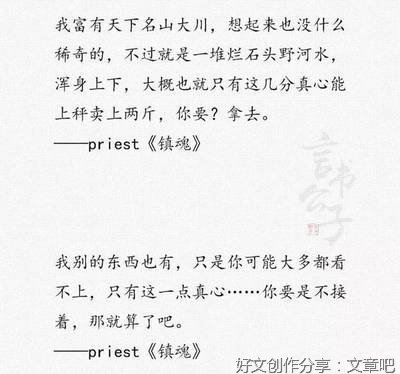 我富有天下名山大川，想起来也没什么
稀奇的，不过就是一堆烂石头野河水，
浑身上下，大概也就只有这几分真心能
上秤卖上两斤，你要？拿去。
——priest《镇魂》
言书公子
我别的东西也有，只是你可能大多都看
不上，只有这一点真心……你要是不接
着，那就算了吧。
——priest《镇魂》
好文创作分享：文章吧